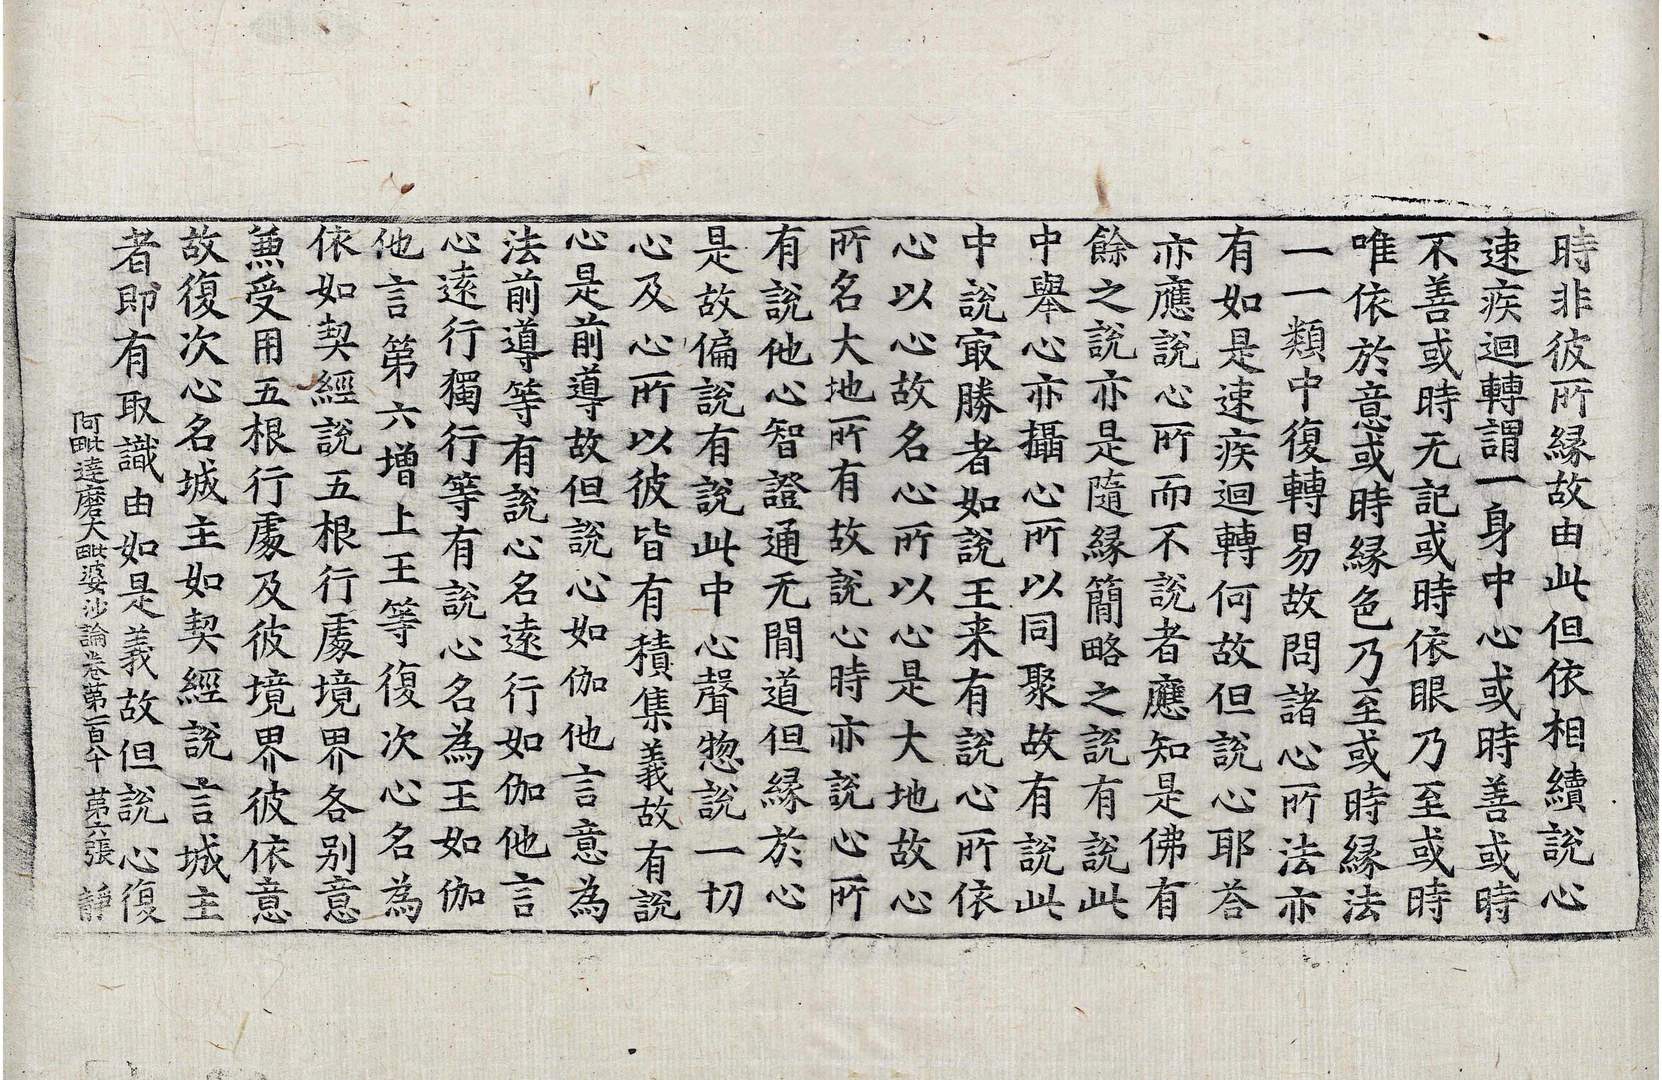 時非彼所緣故由此但依相續說心
速疾迴轉謂一身中心或時善或時
不善或時无記或時依眼乃至或時
唯依於意或時緣色乃至或時緣法
一一類中復轉易故問諸心所法亦
有如是速疾迴轉何故但說心耶荅
亦應說心所而不說者應知是佛有
餘之說亦是隨緣簡略之說有說此
中舉心亦攝心所以同聚故有說此
中說冣勝者如說王来有說心所依
心以心故名心所以心是大地故心
所名大地所有故說心時亦說心所
有說他心智證通无間道但緣於心
是故偏說有說此中心聲惣說一切
心及心所以彼皆有積集義故有說
心是前導故但說心如伽他言意為
法前導等有說心名遠行如伽他言
心遠行獨行等有說心名為王如伽
他言第六增上王等復次心名為
依如契經說五根行處境界各別意
兼受用五根行處及彼境界彼依意
故復次心名城主如契經說言城主
者即有取識由如是義故但說心復
阿毗達磨大毗婆沙論卷第一百八十 第六張 靜